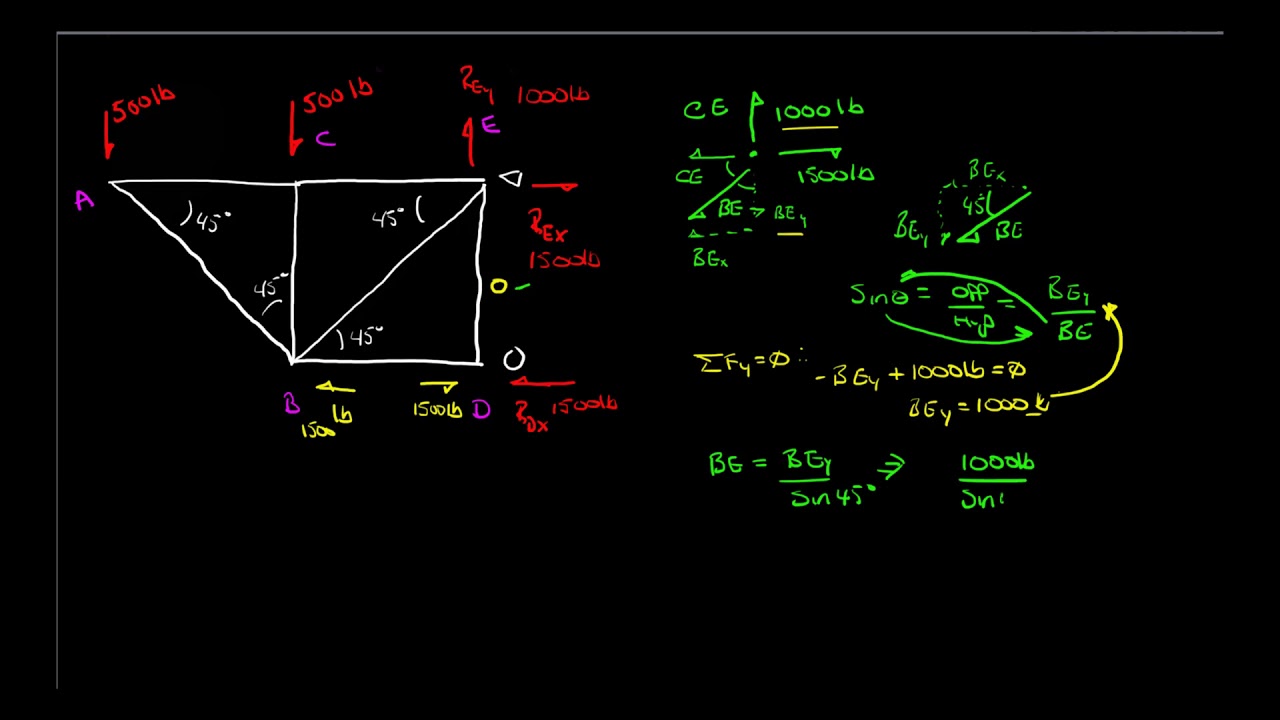 500lb
500lb
REy 1000lb
C
E
A
45°
45°
REx
1500lb
45°
45°
0
B
1500 lb
1500lb
D
RDx 1500lb
CE
1000lb
CE
1500lb
BE → BEy
BEx
BEx
45°
BEy
BE
Sinθ = OPP/Hyp = BEy/BE
ΣFy=0 ∴ -BEy + 1000lb = 0
BEy = 1000lb
BE = BEy/Sin45° ⇒ 1000lb/Sin